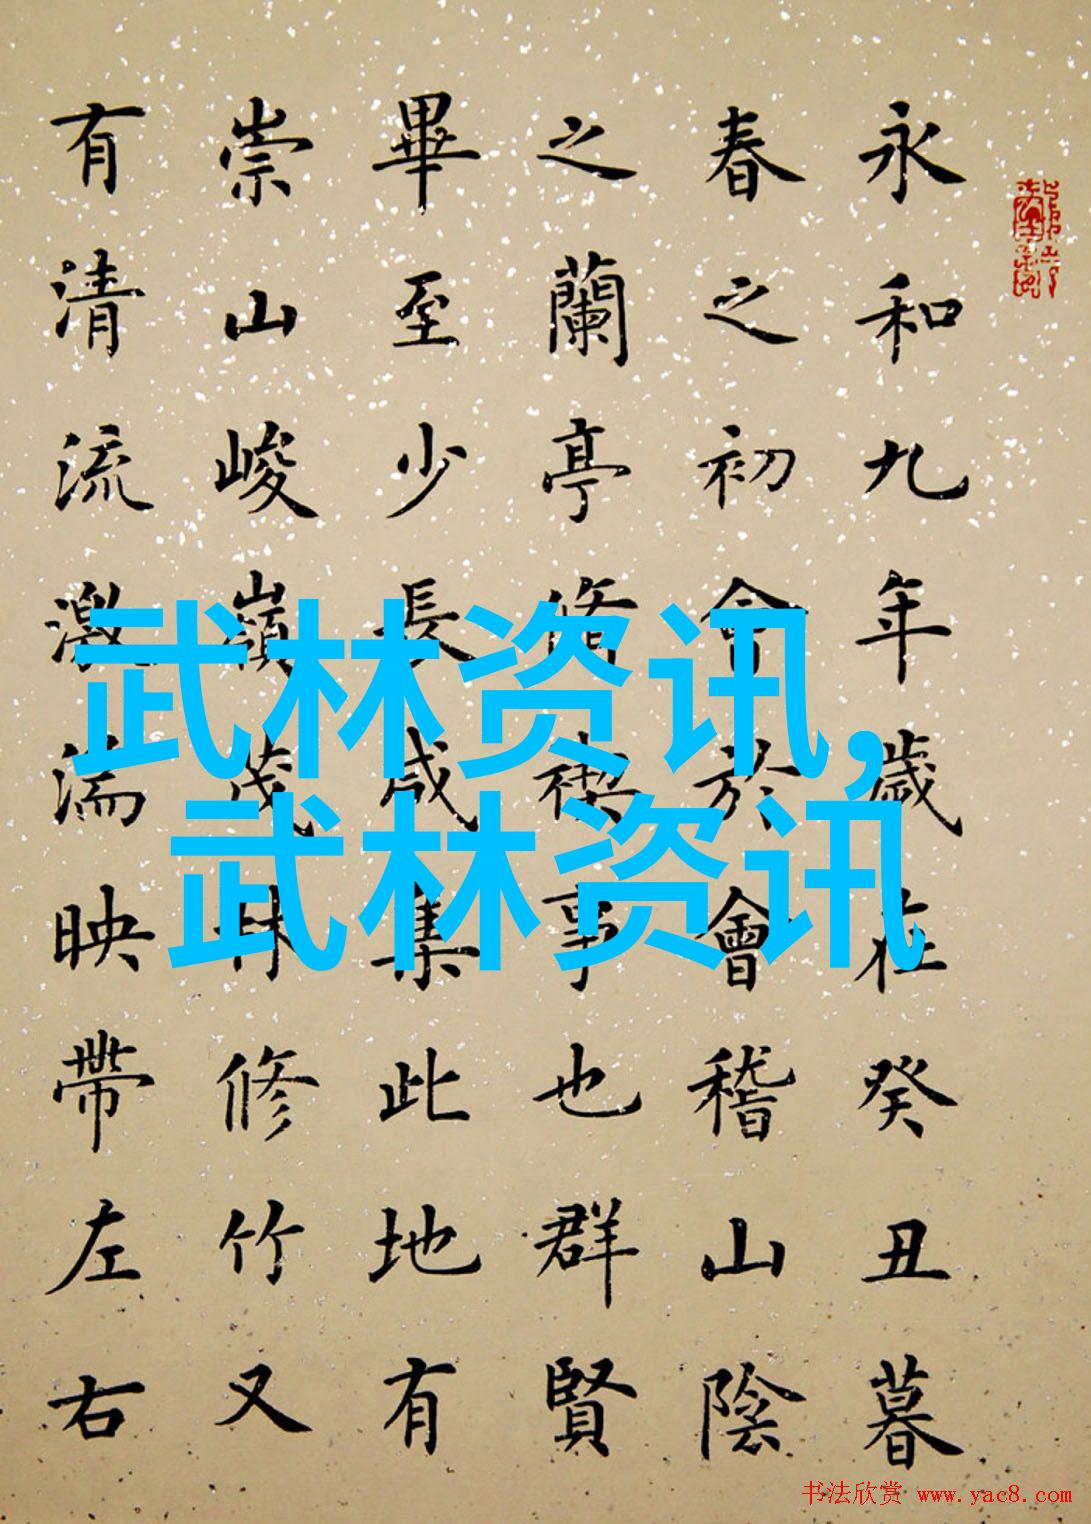 永和九年歲在癸丑暮
春之初會於會稽山陰
之蘭亭脩禊事也群賢
畢至少長咸集此地有
崇山峻嶺茂林修竹又
有清流激湍映帶左右
武林资讯,
武林资讯
书法欣赏 www.yac8.com